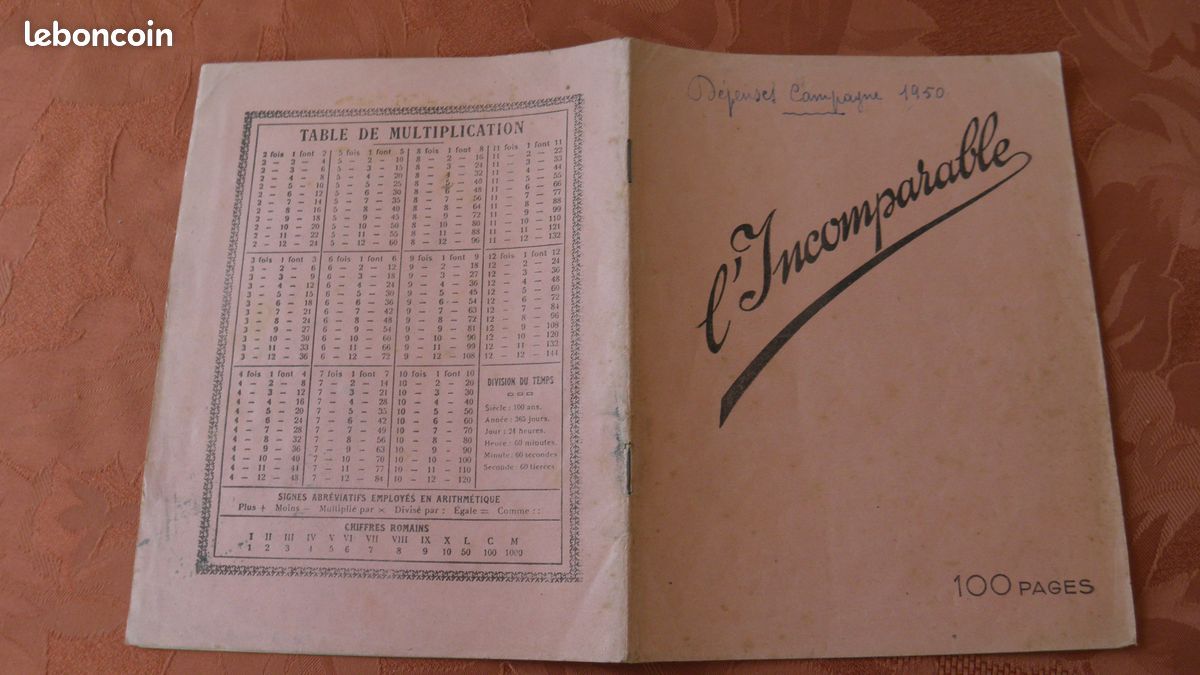 leboncoin
TABLE DE MULTIPLICATION
2 fois 1 font 2 5 fois 1 font 5 8 fois 1 font 8 11 fois 1 font 11
2 – 2 – 4 5 – 2 – 10 8 – 2 – 16 11 – 2 – 22
2 – 3 – 6 5 – 3 – 15 8 – 3 – 24 11 – 3 – 33
2 – 4 – 8 5 – 4 – 20 8 – 4 – 32 11 – 4 – 44
2 – 5 – 10 5 – 5 – 25 8 – 5 – 40 11 – 5 – 55
2 – 6 – 12 5 – 6 – 30 8 – 6 – 48 11 – 6 – 66
2 – 7 – 14 5 – 7 – 35 8 – 7 – 56 11 – 7 – 77
2 – 8 – 16 5 – 8 – 40 8 – 8 – 64 11 – 8 – 88
2 – 9 – 18 5 – 9 – 45 8 – 9 – 72 11 – 9 – 99
2 – 10 – 20 5 – 10 – 50 8 – 10 – 80 11 – 10 – 110
2 – 11 – 22 5 – 11 – 55 8 – 11 – 88 11 – 11 – 121
2 – 12 – 24 5 – 12 – 60 8 – 12 – 96 11 – 12 – 132
3 fois 1 font 3 6 fois 1 font 6 9 fois 1 font 9 12 fois 1 font 12
3 – 2 – 6 6 – 2 – 12 9 – 2 – 18 12 – 2 – 24
3 – 3 – 9 6 – 3 – 18 9 – 3 – 27 12 – 3 – 36
3 – 4 – 12 6 – 4 – 24 9 – 4 – 36 12 – 4 – 48
3 – 5 – 15 6 – 5 – 30 9 – 5 – 45 12 – 5 – 60
3 – 6 – 18 6 – 6 – 36 9 – 6 – 54 12 – 6 – 72
3 – 7 – 21 6 – 7 – 42 9 – 7 – 63 12 – 7 – 84
3 – 8 – 24 6 – 8 – 48 9 – 8 – 72 12 – 8 – 96
3 – 9 – 27 6 – 9 – 54 9 – 9 – 81 12 – 9 – 108
3 – 10 – 30 6 – 10 – 60 9 – 10 – 90 12 – 10 – 120
3 – 11 – 33 6 – 11 – 66 9 – 11 – 99 12 – 11 – 132
3 – 12 – 36 6 – 12 – 72 9 – 12 – 108 12 – 12 – 144
4 fois 1 font 4 7 fois 1 font 7 10 fois 1 font 10
4 – 2 – 8 7 – 2 – 14 10 – 2 – 20
4 – 3 – 12 7 – 3 – 21 10 – 3 – 30
4 – 4 – 16 7 – 4 – 28 10 – 4 – 40
4 – 5 – 20 7 – 5 – 35 10 – 5 – 50
4 – 6 – 24 7 – 6 – 42 10 – 6 – 60
4 – 7 – 28 7 – 7 – 49 10 – 7 – 70
4 – 8 – 32 7 – 8 – 56 10 – 8 – 80
4 – 9 – 36 7 – 9 – 63 10 – 9 – 90
4 – 10 – 40 7 – 10 – 70 10 – 10 – 100
4 – 11 – 44 7 – 11 – 77 10 – 11 – 110
4 – 12 – 48 7 – 12 – 84 10 – 12 – 120
DIVISION DU TEMPS
Siècle : 100 ans.
Année : 365 jours.
Jour : 24 heures.
Heure : 60 minutes.
Minute : 60 secondes
Seconde : 60 tierces
SIGNES ABRÉVIATIFS EMPLOYÉS EN ARITHMÉTIQUE
Plus + Moins – Multiplié par × Divisé par : Egale = Comme : :
CHIFFRES ROMAINS
I II III IV V VI VII VIII IX X L C M
1 2 3 4 5 6 7 8 9 10 50 100 1000
Dépenses Campagne 1950
l'Incomparable
100 PAGES